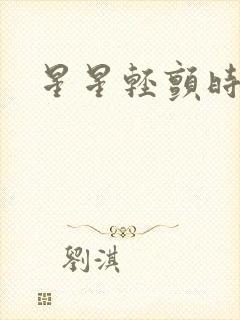 星星輕顫時
劉淇